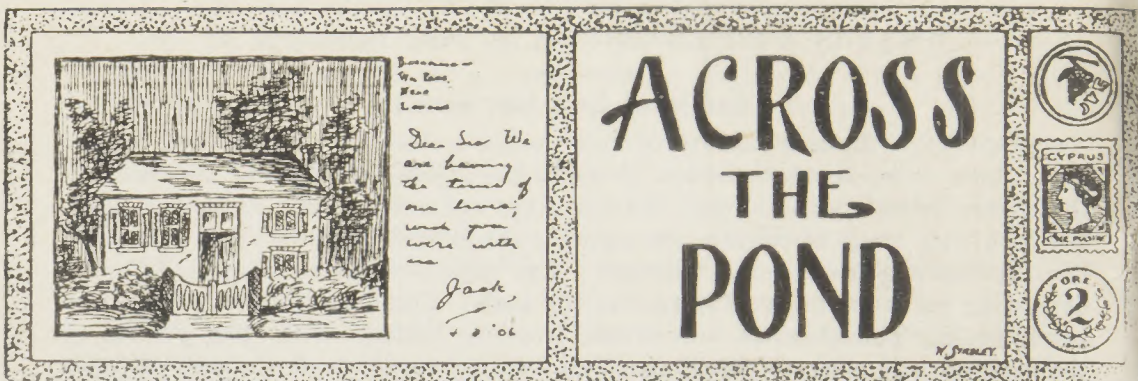 Dear We
are having
the time of
our lives;
wish you
were with
us
Jack,
'06
ACROSS
THE
POND
CYPRUS
ORE
2